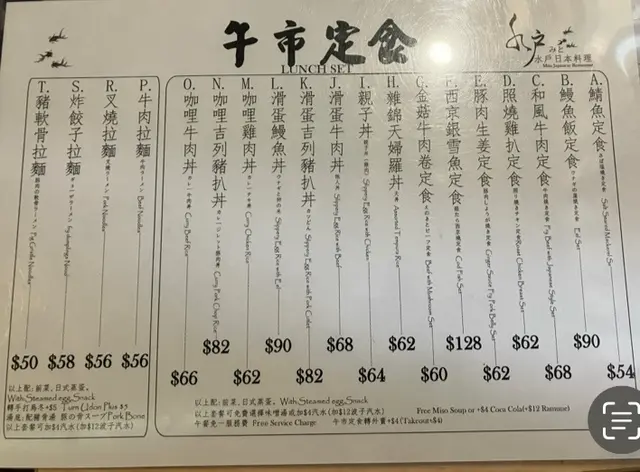 午市定食
LUNCH SET
水戶
みと
水戶日本料理
Mito Japanese Restaurant
A. 鯖魚定食 $54
B. 鰻魚飯定食 Eel Set $90
C. 和風牛肉定食 $68
D. 照燒雞扒定食 $62
E. 豚肉生姜定食 $62
F. 西京銀雪魚定食 Cod Fish Set $128
G. 金菇牛肉卷定食 Beef with Mushroom Set $60
H. 雜錦天婦羅丼 Assorted Tempura Rice $62
I. 親子丼 Slippery Egg Rice with Chicken $64
J. 滑蛋牛肉丼 Slippery Egg Rice with Beef $68
K. 滑蛋吉列豬扒丼 Slippery Egg Rice with Pork Cutlet $82
L. 滑蛋鰻魚丼 Slippery Egg Rice with Eel $90
M. 咖哩雞肉丼 Curry Chicken Rice $62
N. 咖哩吉列豬扒丼 Curry Pork Chop Rice $82
O. 咖哩牛肉丼 Curry Beef Rice $66
以上配: 前菜、日式蒸蛋。
With Steamed egg, Snack
以上套餐可免費選擇味噌湯或加$4汽水(加$12波子汽水) Free Miso Soup or +$4 Coca Cola(+$12 Ramune)
午餐免一服務費 Free Service Charge 午市定食轉外賣+$4(Takeout+$4)
P. 牛肉拉麵 牛肉ラーメン Beef Noodles $56
R. 叉燒拉麵 Pork Noodles $56
S. 炸餃子拉麵 $58
T. 豬軟骨拉麵 $50
以上配: 前菜、日式蒸蛋。
With Steamed egg, Snack
轉手打烏冬+$5 Turn Udon Plus $5
湯底: 配豬骨湯 豚の骨スープ Pork Bone
以上套餐可加$4汽水(加$12波子汽水)